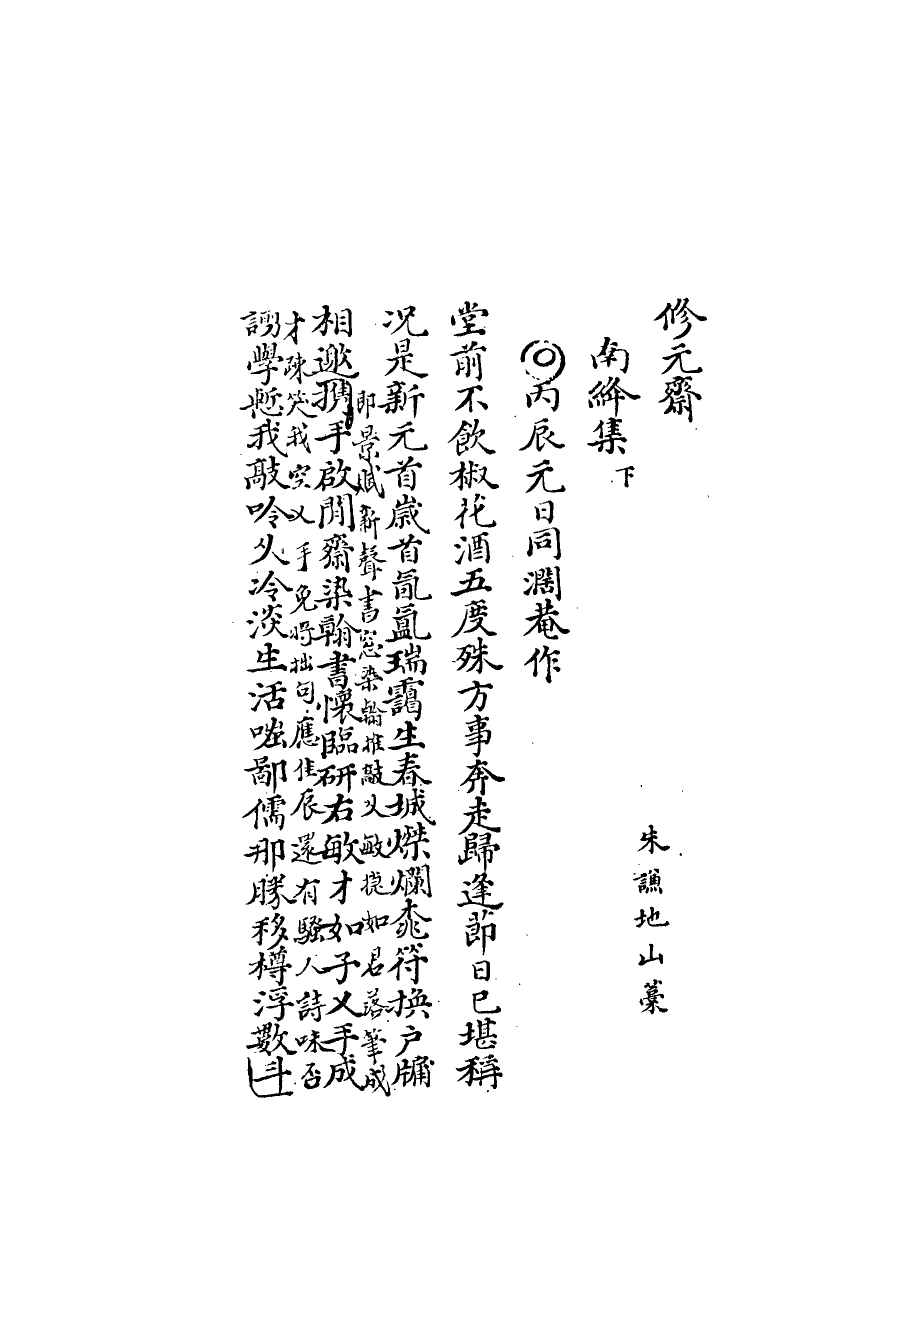 修元齋
南絳集 下
朱謙地山藁
丙辰元日同濶菴作
堂前不飲椒花酒五度殊方事奔走歸逢節日已堪稱
況是新元首歲首氤氳瑞靄生春城燦爛桃符換户牖
即景賦新聲書窓染翰推敲乂敏捷如君落筆成
相邀携手啟閒齋染翰書懷臨研右敏才如子乂手成
才疎笑我空乂手免將拙句應佳辰還有騷人詩味否
謭學慙我敲吟久冷淡生活嗤鄙儒那勝移樽浮數斗